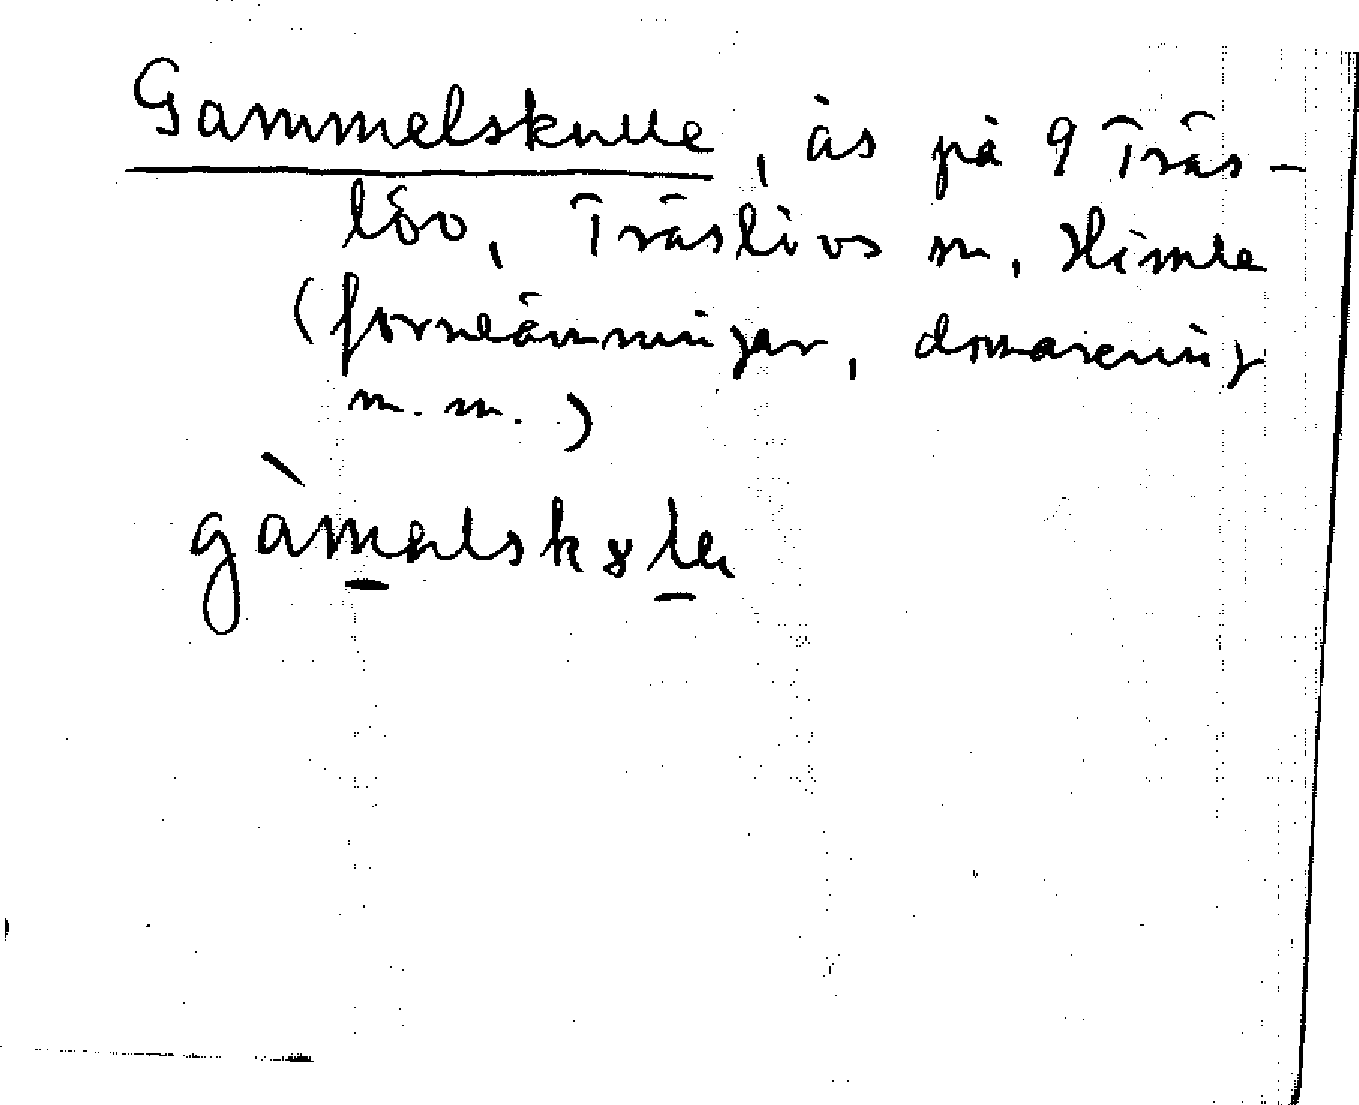 Gammelskulle, ås på 9 Träs-
löv, Träslövs sn, Himle
(fornlämningar, domarering
m.m.)
gàmalskɤla